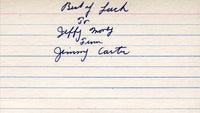 Best of Luck
To
Jeffy
From
Jimmy Carter